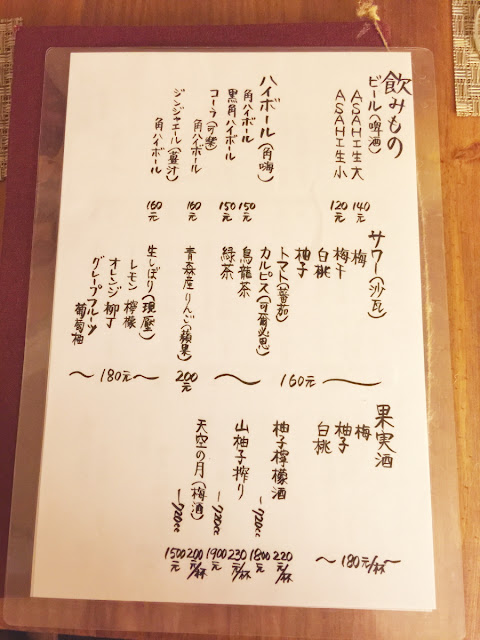 飲みもの
ビール(啤酒)
ASAHI生大 140元
ASAHI生小 120元
ハイボール(角嗨)
角ハイボール 150元
黒角ハイボール 150元
コーラ(可樂)
角ハイボール 160元
ジンジャエール(薑汁)
角ハイボール 160元
サワー(沙瓦)
梅
梅干
白桃
柚子
トマト(蕃茄)
カルピス(可爾必思)
烏龍茶
緑茶
〜 160元 〜
青森産りんご(蘋果) 200元
生しぼり(現壓)
レモン 檸檬
オレンジ 柳丁
グレープフルーツ
葡萄柚
〜 180元 〜
果実酒
梅
柚子
白桃
〜 180元/杯 〜
柚子檸檬酒 220元/杯
720cc 1800元
山柚子搾り 230元/杯
720cc 1900元
天空の月(梅酒) 200元/杯
720cc 1500元